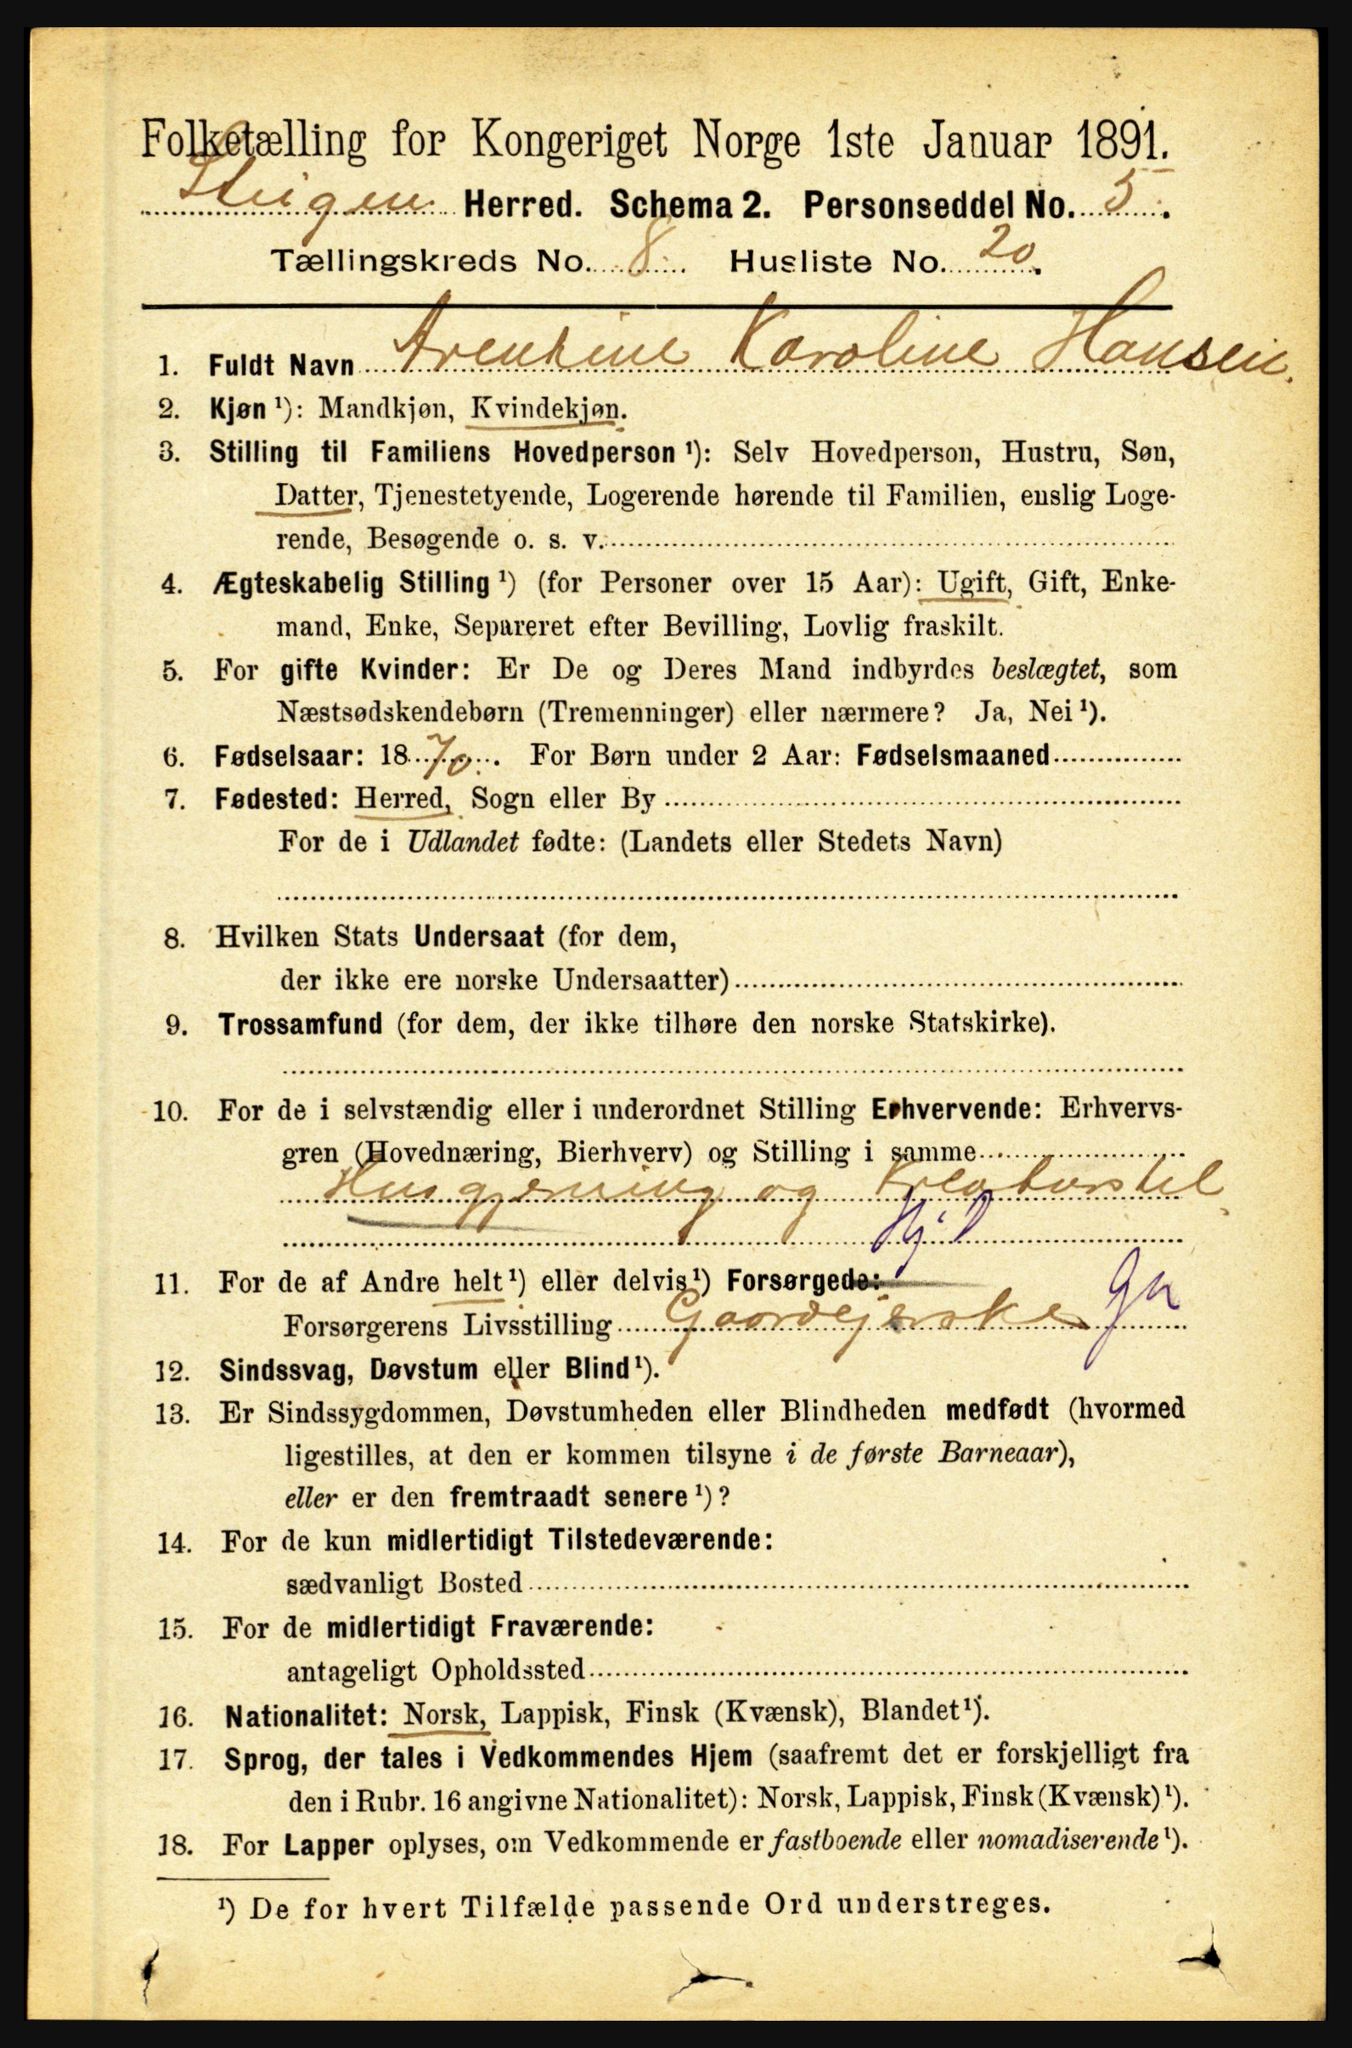 Folketælling for Kongeriget Norge 1ste Januar 1891.
Steigen Herred. Schema 2. Personseddel No. 5.
Tællingskreds No. 8. Husliste No. 20.
1. Fuldt Navn Arentine Karoline Hansen.
2. Kjøn ¹): Mandkjøn, Kvindekjøn.
3. Stilling til Familiens Hovedperson ¹): Selv Hovedperson, Hustru, Søn,
Datter, Tjenestetyende, Logerende hørende til Familien, enslig Loge-
rende, Besøgende o. s. v.
4. Ægteskabelig Stilling ¹) (for Personer over 15 Aar): Ugift, Gift, Enke-
mand, Enke, Separeret efter Bevilling, Lovlig fraskilt.
5. For gifte Kvinder: Er De og Deres Mand indbyrdes beslægtet, som
Næstsødskendebørn (Tremenninger) eller nærmere? Ja, Nei ¹).
6. Fødselsaar: 1870. For Børn under 2 Aar: Fødselsmaaned
7. Fødested: Herred, Sogn eller By
For de i Udlandet fødte: (Landets eller Stedets Navn)
8. Hvilken Stats Undersaat (for dem,
der ikke ere norske Undersaatter)
9. Trossamfund (for dem, der ikke tilhøre den norske Statskirke).
10. For de i selvstændig eller i underordnet Stilling Erhvervende: Erhvervs-
gren (Hovednæring, Bierhverv) og Stilling i samme
Husgjerning og Kreaturstel
Hjl
11. For de af Andre helt ¹) eller delvis ¹) Forsørgede:
Forsørgerens Livsstilling Gaardejerske
12. Sindssvag, Døvstum eller Blind ¹).
13. Er Sindssygdommen, Døvstumheden eller Blindheden medfødt (hvormed
ligestilles, at den er kommen tilsyne i de første Barneaar),
eller er den fremtraadt senere ¹)?
14. For de kun midlertidigt Tilstedeværende:
sædvanligt Bosted
15. For de midlertidigt Fraværende:
antageligt Opholdssted
16. Nationalitet: Norsk, Lappisk, Finsk (Kvænsk), Blandet ¹).
17. Sprog, der tales i Vedkommendes Hjem (saafremt det er forskjelligt fra
den i Rubr. 16 angivne Nationalitet): Norsk, Lappisk, Finsk (Kvænsk) ¹).
18. For Lapper oplyses, om Vedkommende er fastboende eller nomadiserende ¹).
¹) De for hvert Tilfælde passende Ord understreges.